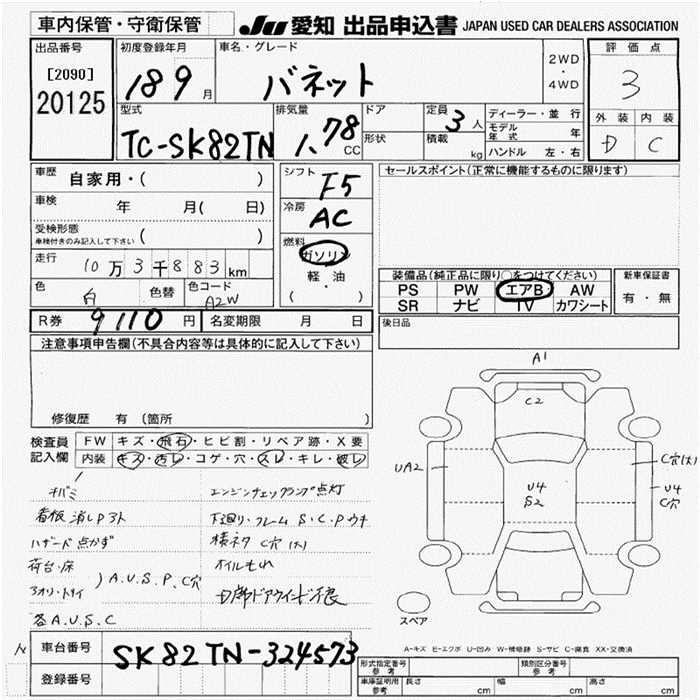 車内保管・守衛保管
JU 愛知 出品申込書 JAPAN USED CAR DEALERS ASSOCIATION
出品番号
[2090]
20125
初度登録年月
18 9 月
車名・グレード
バネット
2WD
・
4WD
評価点
3
外装 内装
D C
型式
TC-SK82TN
排気量
1.78 CC
ドア
形状
定員 3 人
積載 kg
ディーラー・並行
モデル年式 年
ハンドル 左・右
車歴
自家用・( )
車検
年 月( 日)
受検形態
車検付きのみ記入して下さい ( )
走行
10万3千883km
色 白 色替 色コード A2W
シフト F5
冷房 AC
燃料
ガソリン
軽・油
( )
セールスポイント(正常に機能するものに限ります)
装備品(純正品に限り○をつけてください)
PS PW エアB AW
SR ナビ TV カワシート
新車保証書
有・無
後日品
R券 9110 円 名変期限 月 日
注意事項申告欄(不具合内容等は具体的に記入して下さい)
修復歴 有(箇所
検査員記入欄
FW キズ・飛石・ヒビ割・リペア跡・X要
内装 キズ・汚レ・コゲ・穴・スレ・キレ・破レ
看板消し
ハザード点かず
荷台・床
アオリ・トリイ )A.U.S.P.C穴
各A.U.S.C
エンジンチェックランプ点灯
下廻り・フレームS.C.Pウキ
横ネタC穴(大)
オイルもれ
A1
C2
UA2
U4
S2
C穴(大)
U4
C穴
スペア
A-キズ E-エクボ U-凹み W-補修跡 S-サビ C-腐蝕 XX-交換済
車台番号 SK82TN-324573
登録番号
形式指定番号 参考
類別区分番号 参考
車庫証明用 参考 長さ cm 幅 cm 高さ cm